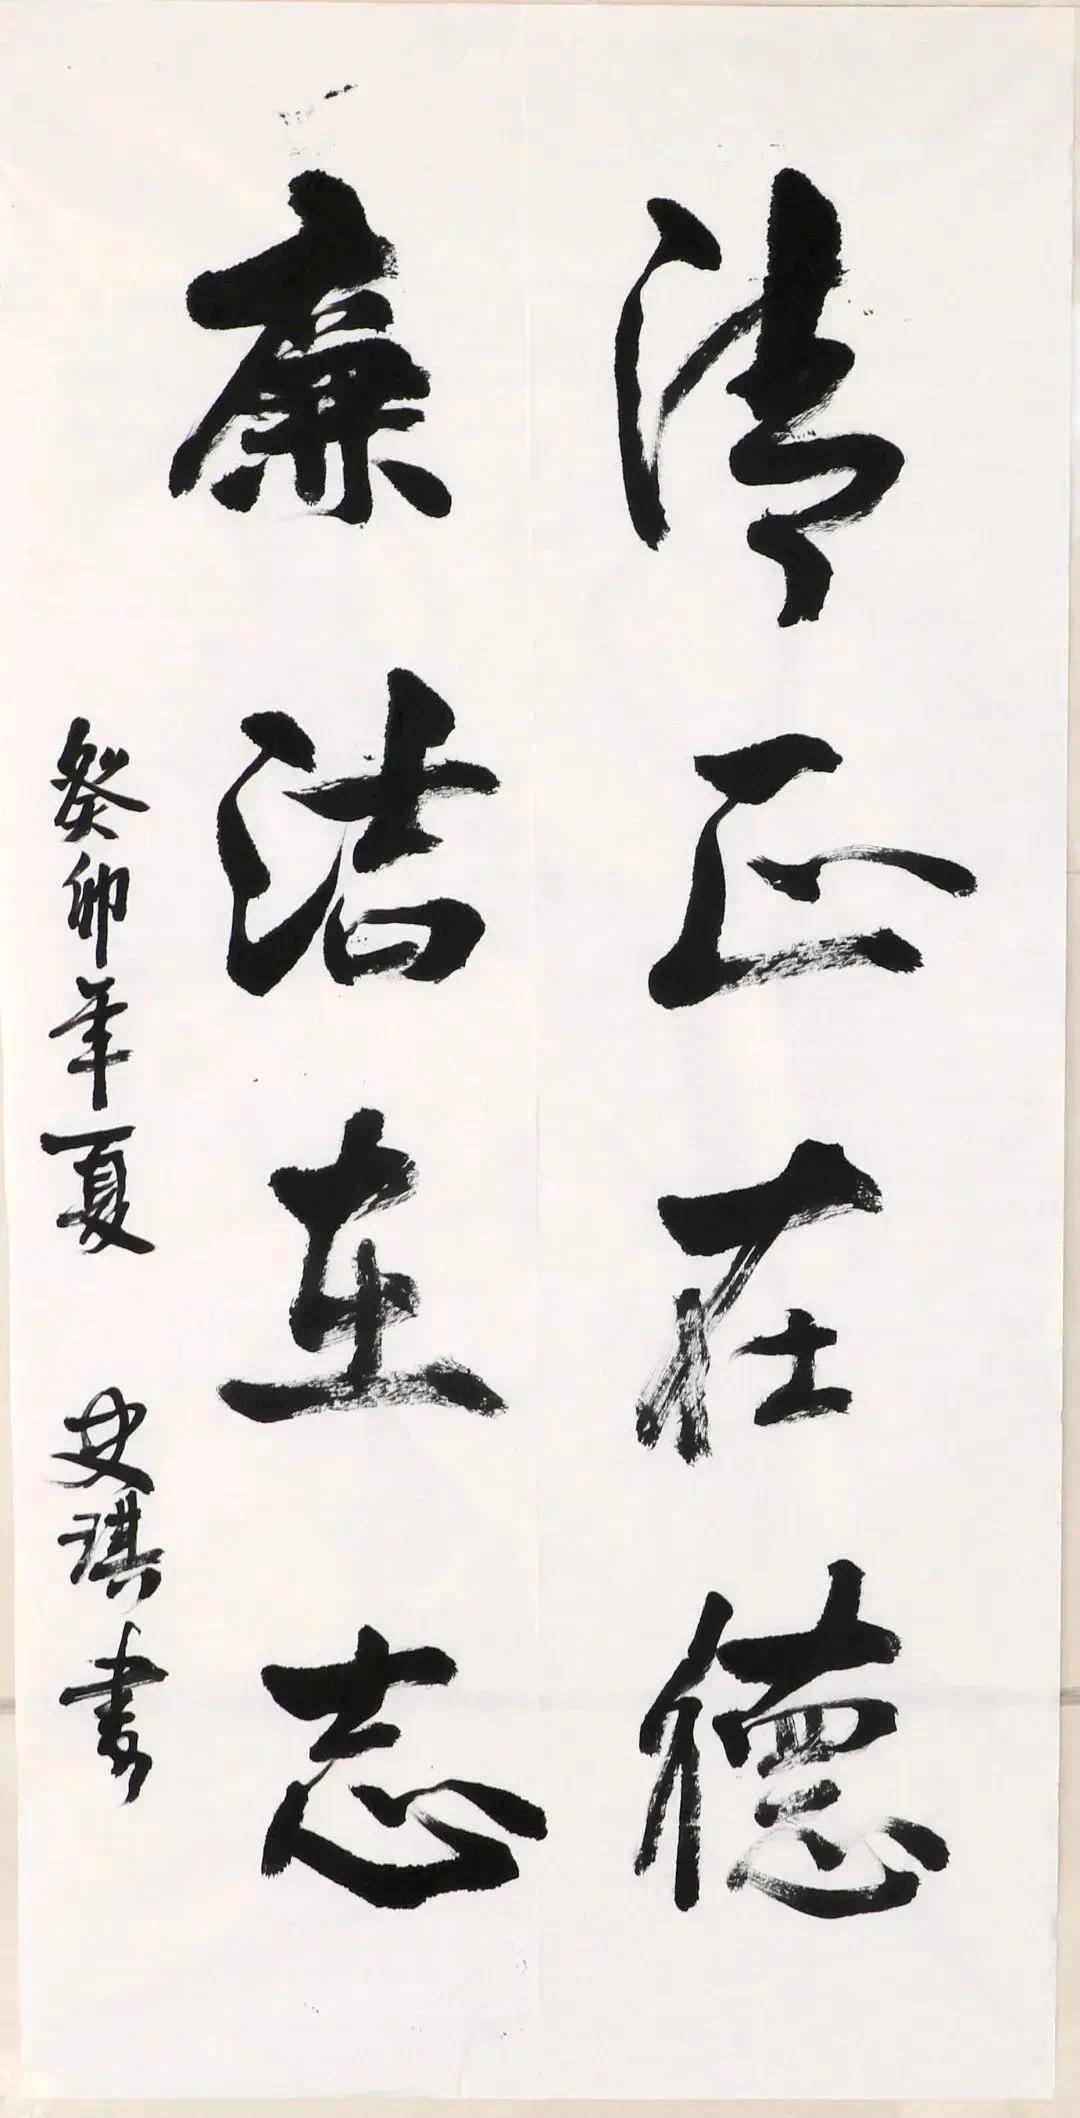 清正在德
廉洁在志
癸卯年夏 史琪书